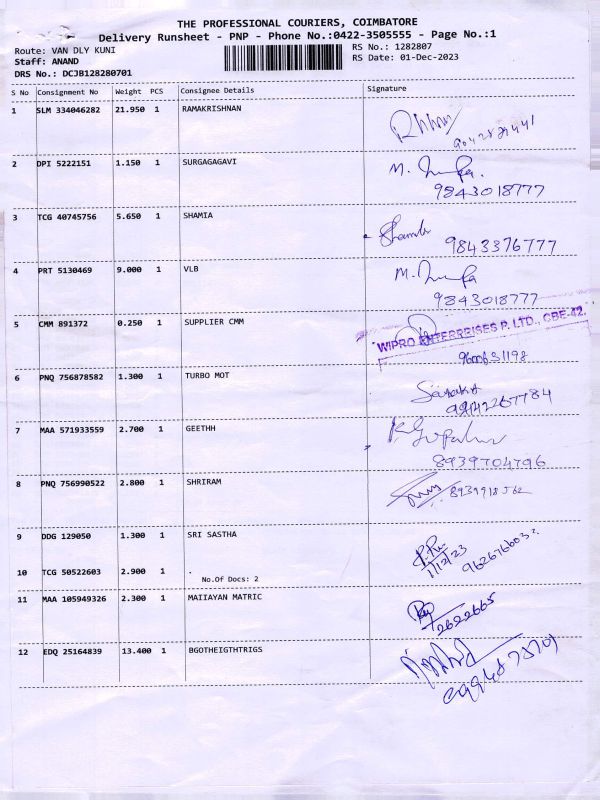 THE PROFESSIONAL COURIERS, COIMBATORE
Delivery Runsheet - PNP - Phone No.:0422-3505555 - Page No.:1
Route: VAN DLY KUNI RS No.: 1282807
Staff: ANAND RS Date: 01-Dec-2023
DRS No.: DCJB128280701
S No Consignment No Weight PCS Consignee Details Signature
1 SLM 334046282 21.950 1 RAMAKRISHNAN
2 DPI 5222151 1.150 1 SURGAGAGAVI M.
9843018777
3 TCG 40745756 5.650 1 SHAMIA
9843376777
4 PRT 5130469 9.000 1 VLB M.
9843018777
5 CMM 891372 0.250 1 SUPPLIER CMM
WIPRO ENTERPRISES P. LTD., CBE-42.
6 PNQ 756878582 1.300 1 TURBO MOT
7 MAA 571933559 2.700 1 GEETHH
8939704796
8 PNQ 756990522 2.800 1 SHRIRAM
9 DDG 129050 1.300 1 SRI SASTHA
1/12/23
10 TCG 50522603 2.900 1 .
No.Of Docs: 2
11 MAA 105949326 2.300 1 MAIIAYAN MATRIC
2622665
12 EDQ 25164839 13.400 1 BGOTHEIGTHTRIGS